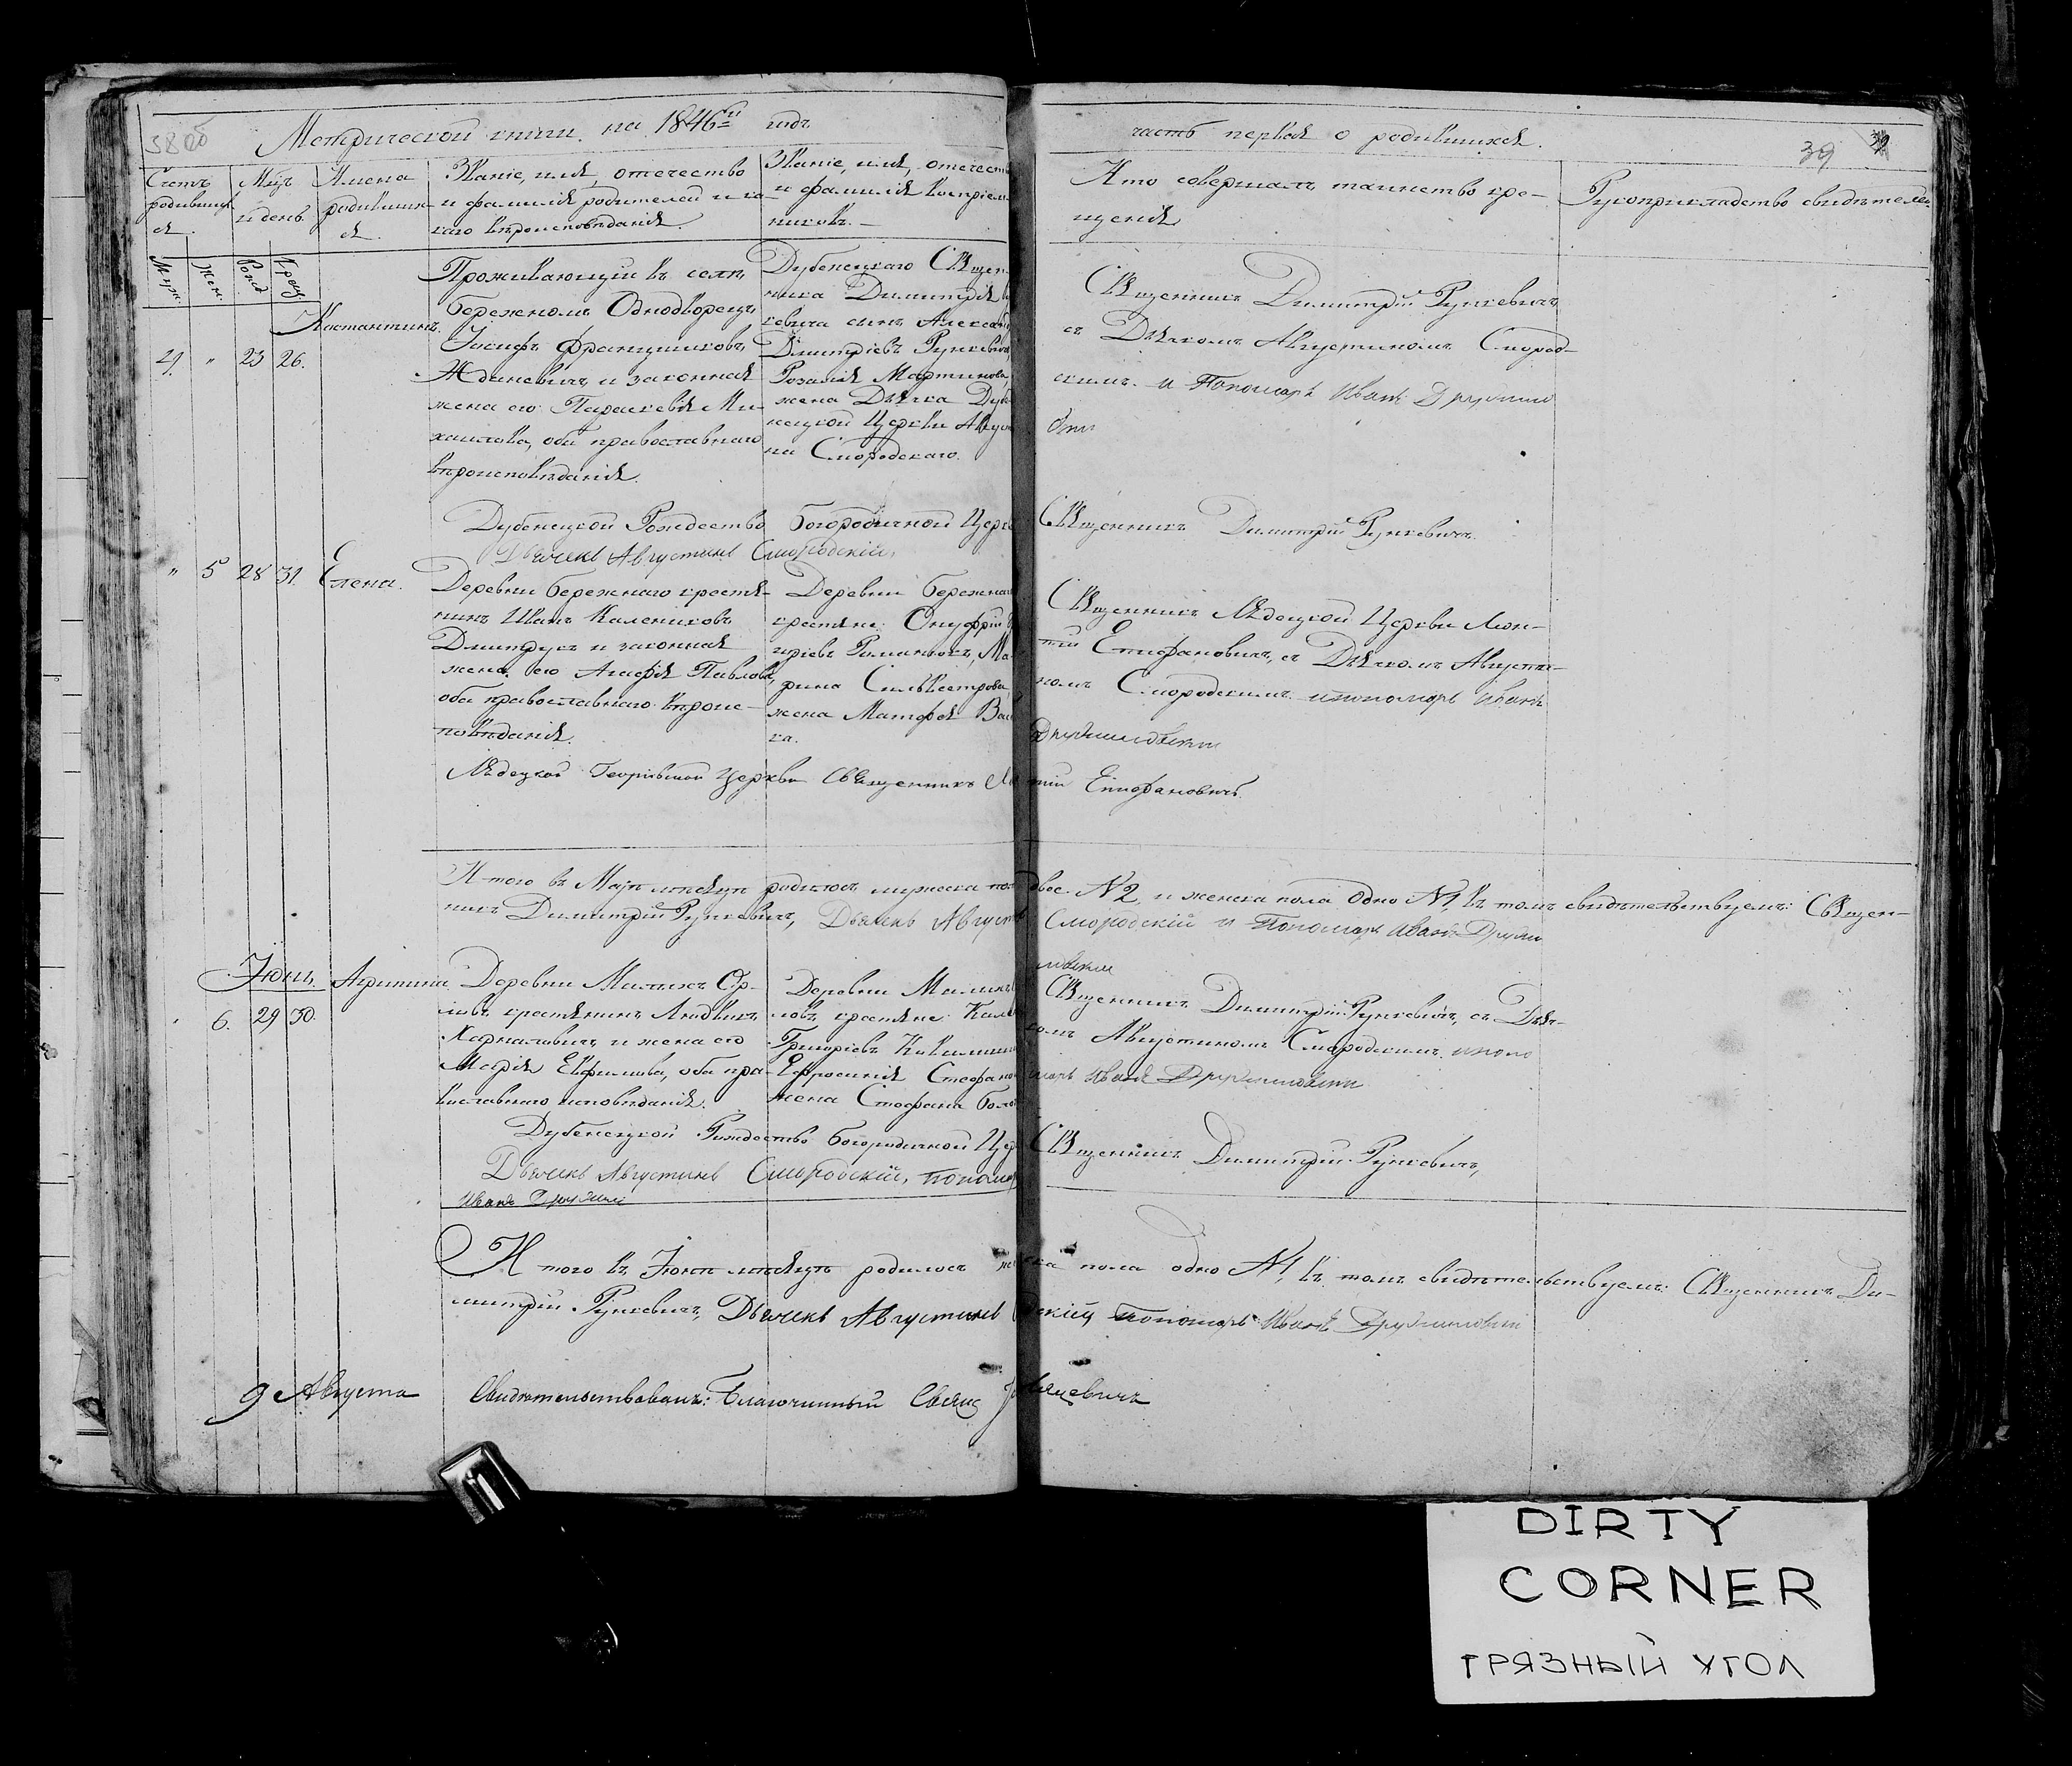 38 об
Метрической книги на 1846й годъ
часть первая о родившихся.
39
Счетъ родившихся.
Мцъ и день
Имена родившихся.
Званіе, имя, отечество и фамилія родителей и какаго вѣроисповѣданія.
Званіе, имя, отечество и фамилія воспріемниковъ.
Кто совершалъ таинство крещенія
Рукоприкладство свидѣтелей
Муж. Жен. Рожд. Крещ.
4. " 23 26.
Костантинъ
Проживающій въ селѣ
Бережномъ Однодворецъ
Іосифъ Францишковъ
Жданевичъ и законная
жена его Параскевія Ми-
хаилова, оба православнаго
вѣроисповѣданія.
Дубенецкаго Священ-
ника Димитрія
кевича сынъ Алексан
Дмитріевъ Рункевичъ,
Розалія Мартинова,
жена Дьячка Дуб
нецкой Церкви Авгус
на Смородскаго.
Священникъ Димитрій Рункевичъ
съ Дьячкомъ Августиномъ Смород-
скимъ. и Пономарь Иванъ
Дубенецкой Рождество Богородичной Церк
Священникъ Димитрій Рункевичъ.
Дьячекъ Августинъ Смородскій,
" 5 28 31. Елена.
Деревни Бережнаго крестья-
нинъ Иванъ Калениковъ
Дмитрукъ и законная
жена его Агафія Павлова,
оба православнаго вѣроис-
повѣданія.
Деревни Бережна
крестьяне: Онуфрій
Романюкъ, Ма
рина Сильвестрова,
жена Матфея Вас
ка.
Священникъ Лядецкой Церкви Леон-
тій Епифановичъ, съ Дьячкомъ Августи-
номъ Смородскимъ и пономарь Иванъ
Лядецкой Георгіевской Церкви Священникъ Ле
тій Епифановичъ.
И того въ Маѣ мѣсяцѣ родилось мужеска пол двое №2, и женска пола одно №1, въ томъ свидѣтельствуемъ: Священ-
никъ Димитрій Рункевичъ, Дьячекъ Августинъ Смородскій и Пономарь Иванъ
Іюнь
6. 29 30.
Агрипина
Деревни Малыхъ Ор-
ловъ крестьянинъ Людвикъ
Харналовичъ и жена его
Марія Евфимова, оба пра-
вославнаго исповѣданія.
Деревни Малыхъ
ловъ крестьяне: Кали
Григоріевъ
Ефросинія Стефано
жена Стефана Бол
Священникъ Димитрій Рункевичъ, съ Дья-
комъ Августиномъ Смородскимъ и поно
марь Иванъ
Дубенецкой Рождество Богородичной Цер
Священникъ Димитрій Рункевичъ,
Дьячекъ Августинъ Смородскій, поном
Иванъ
И того въ Іюнѣ мѣсяцѣ родилось же ска пола одно №1, въ томъ свидѣтельствуемъ: Священникъ Ди-
митрій Рункевичъ, Дьячекъ Августинъ дскій, пономарь Иванъ
9 Августа
Свидѣтельствовалъ: Благочинный Свящ
DIRTY
CORNER
ГРЯЗНЫЙ УГОЛ